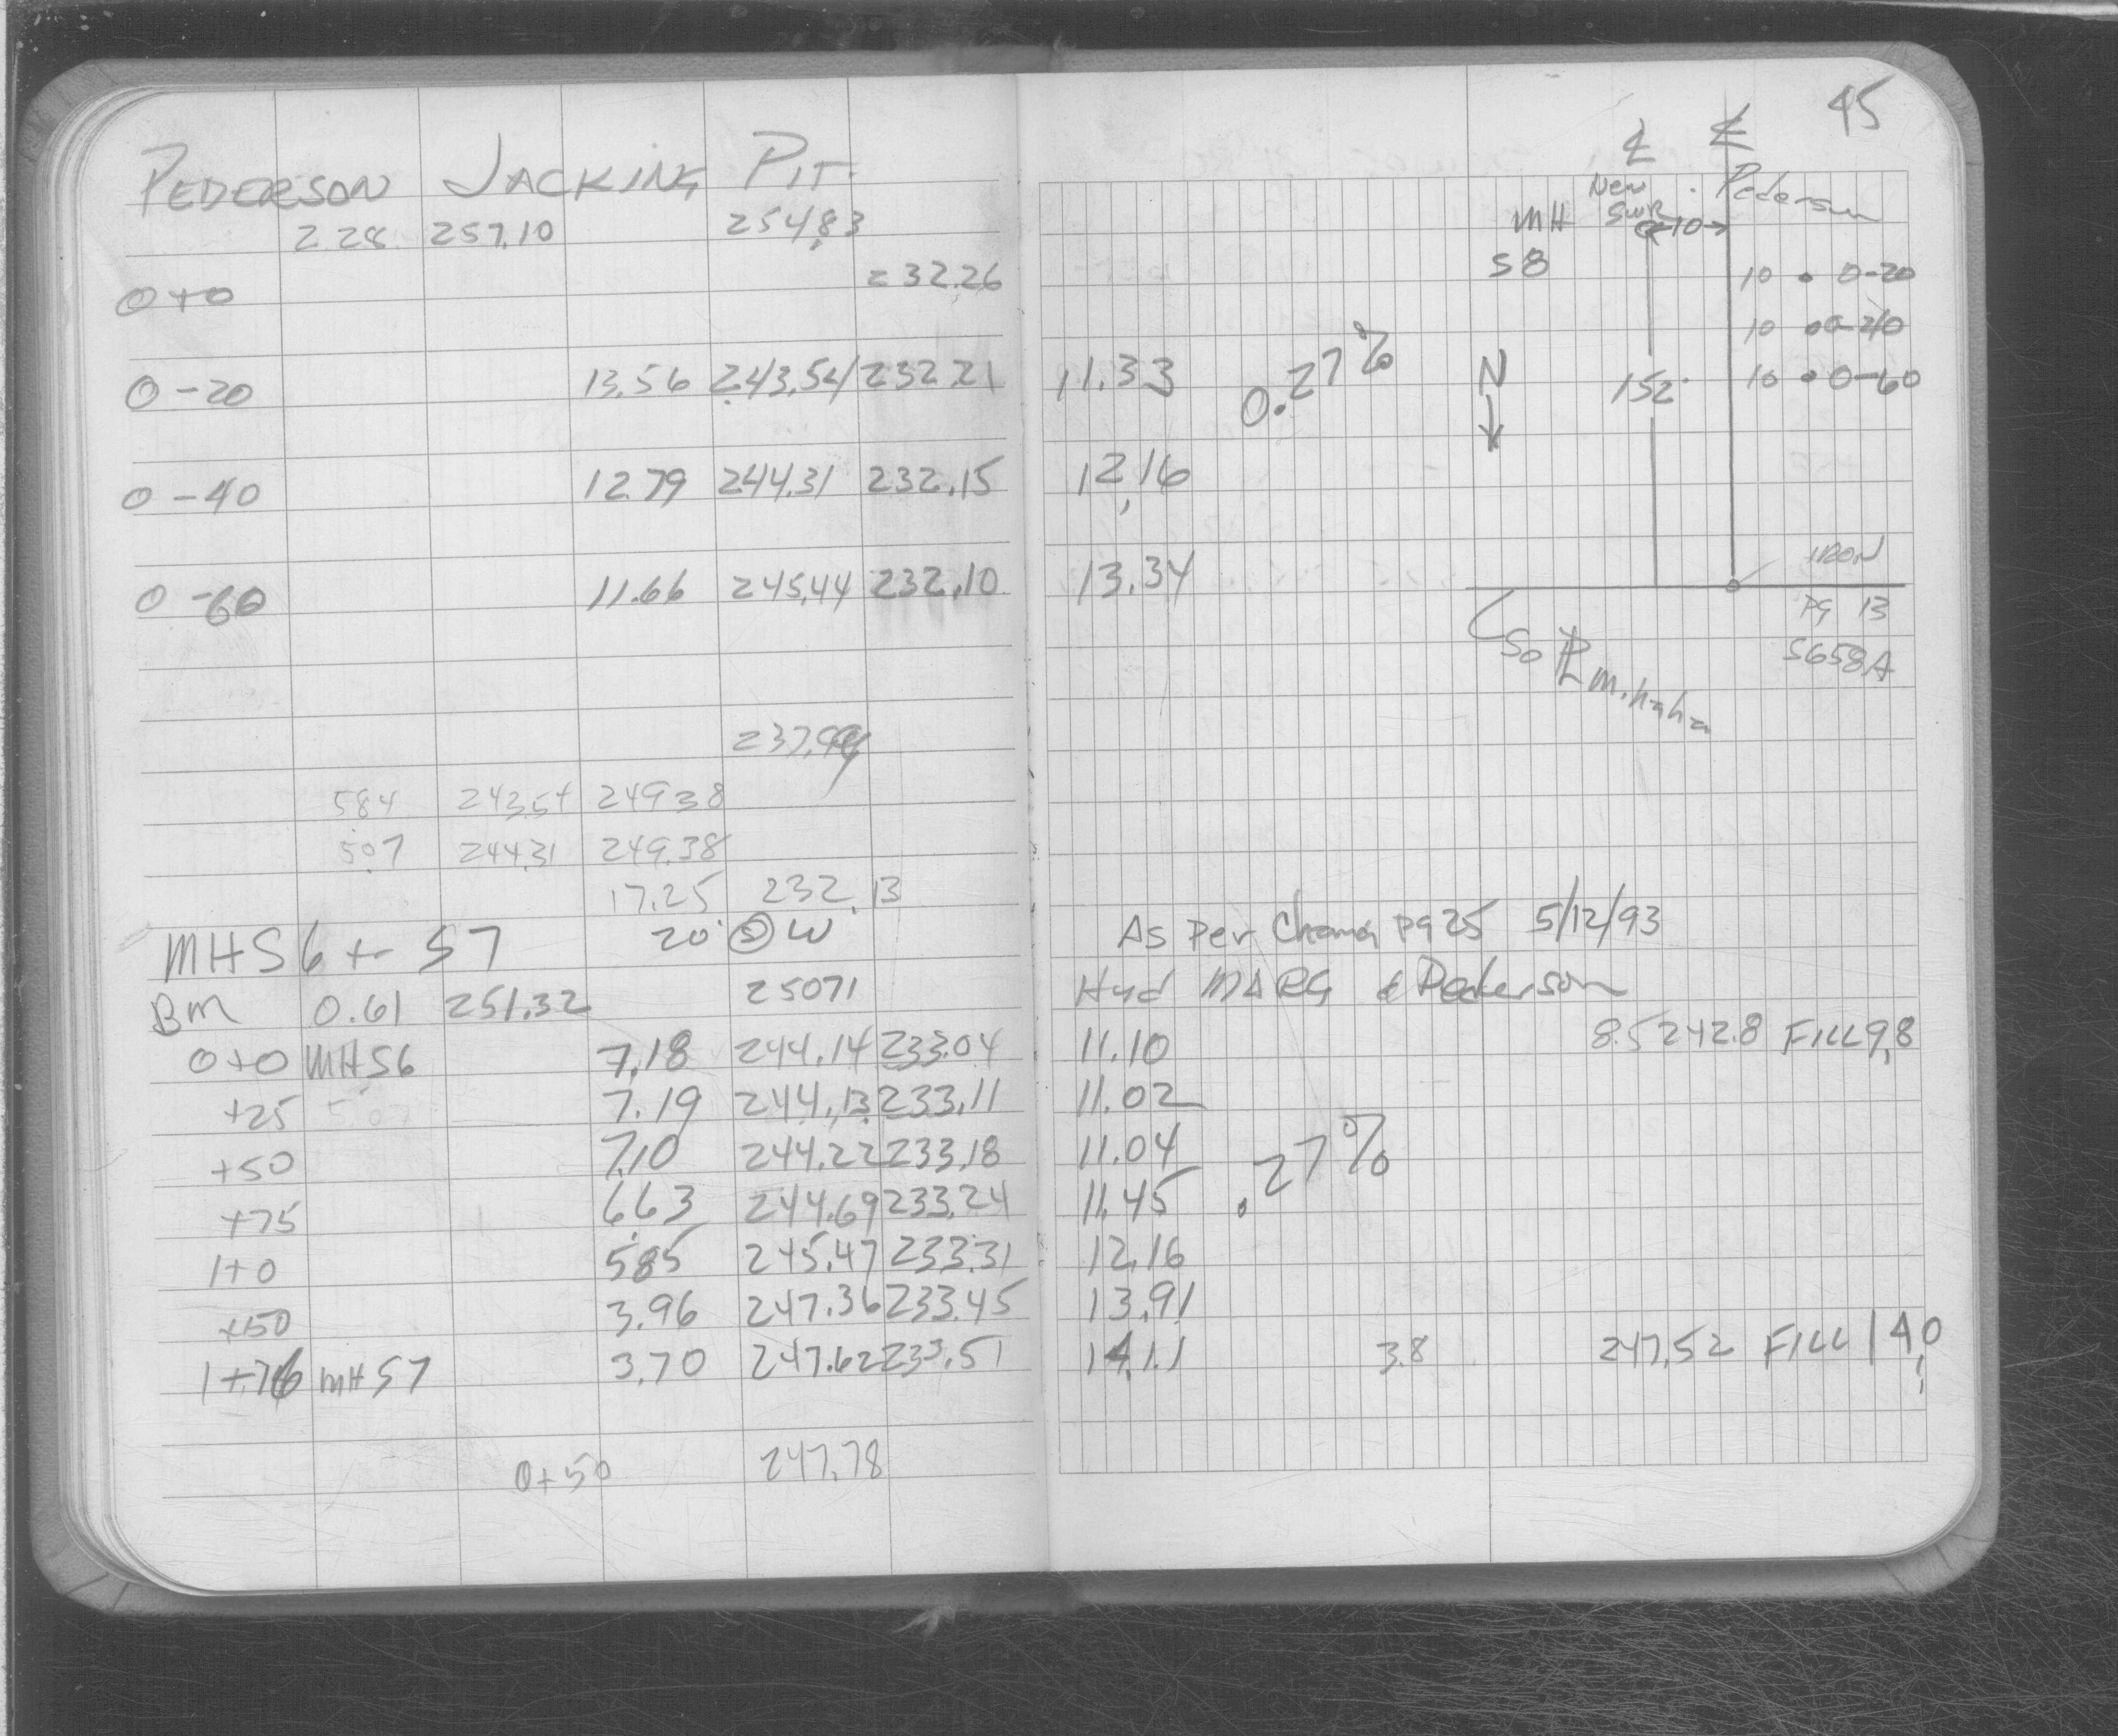 PEDERSON JACKING PIT
2.28 257.10 254.83
0+0 232.26
0-20 13.56 243.54 232.21
0-40 12.79 244.31 232.15
0-60 11.66 245.44 232.10
237.94
584 243.54 249.38
507 244.31 249.38
17.25 232.13
MHS6 + S7 20' W
BM 0.61 251.32 250.71
0+0 MHS6 7.18 244.14 233.04
+25 5.07 7.19 244.13 233.11
+50 7.10 244.22 233.18
+75 6.63 244.69 233.24
1+0 5.85 245.47 233.31
+50 3.96 247.36 233.45
1+76 MHS7 3.70 247.62 233.51
0+50 247.78
45
℄ ℄
New Swr Pederson
MH S8
←10→
10 • 0-20
10 • 0-40
10 • 0-60
11.33 0.27%
N
152'
12.16
13.34
IRON
PG 13
S658A
So PL Minhaha
As Per Change pg 25 5/12/93
Hyd MARG & Pederson
11.10 8.5 242.8 FILL 9.8
11.02
11.04 .27%
11.45
12.16
13.91
14.11 3.8 247.52 FILL 14.0